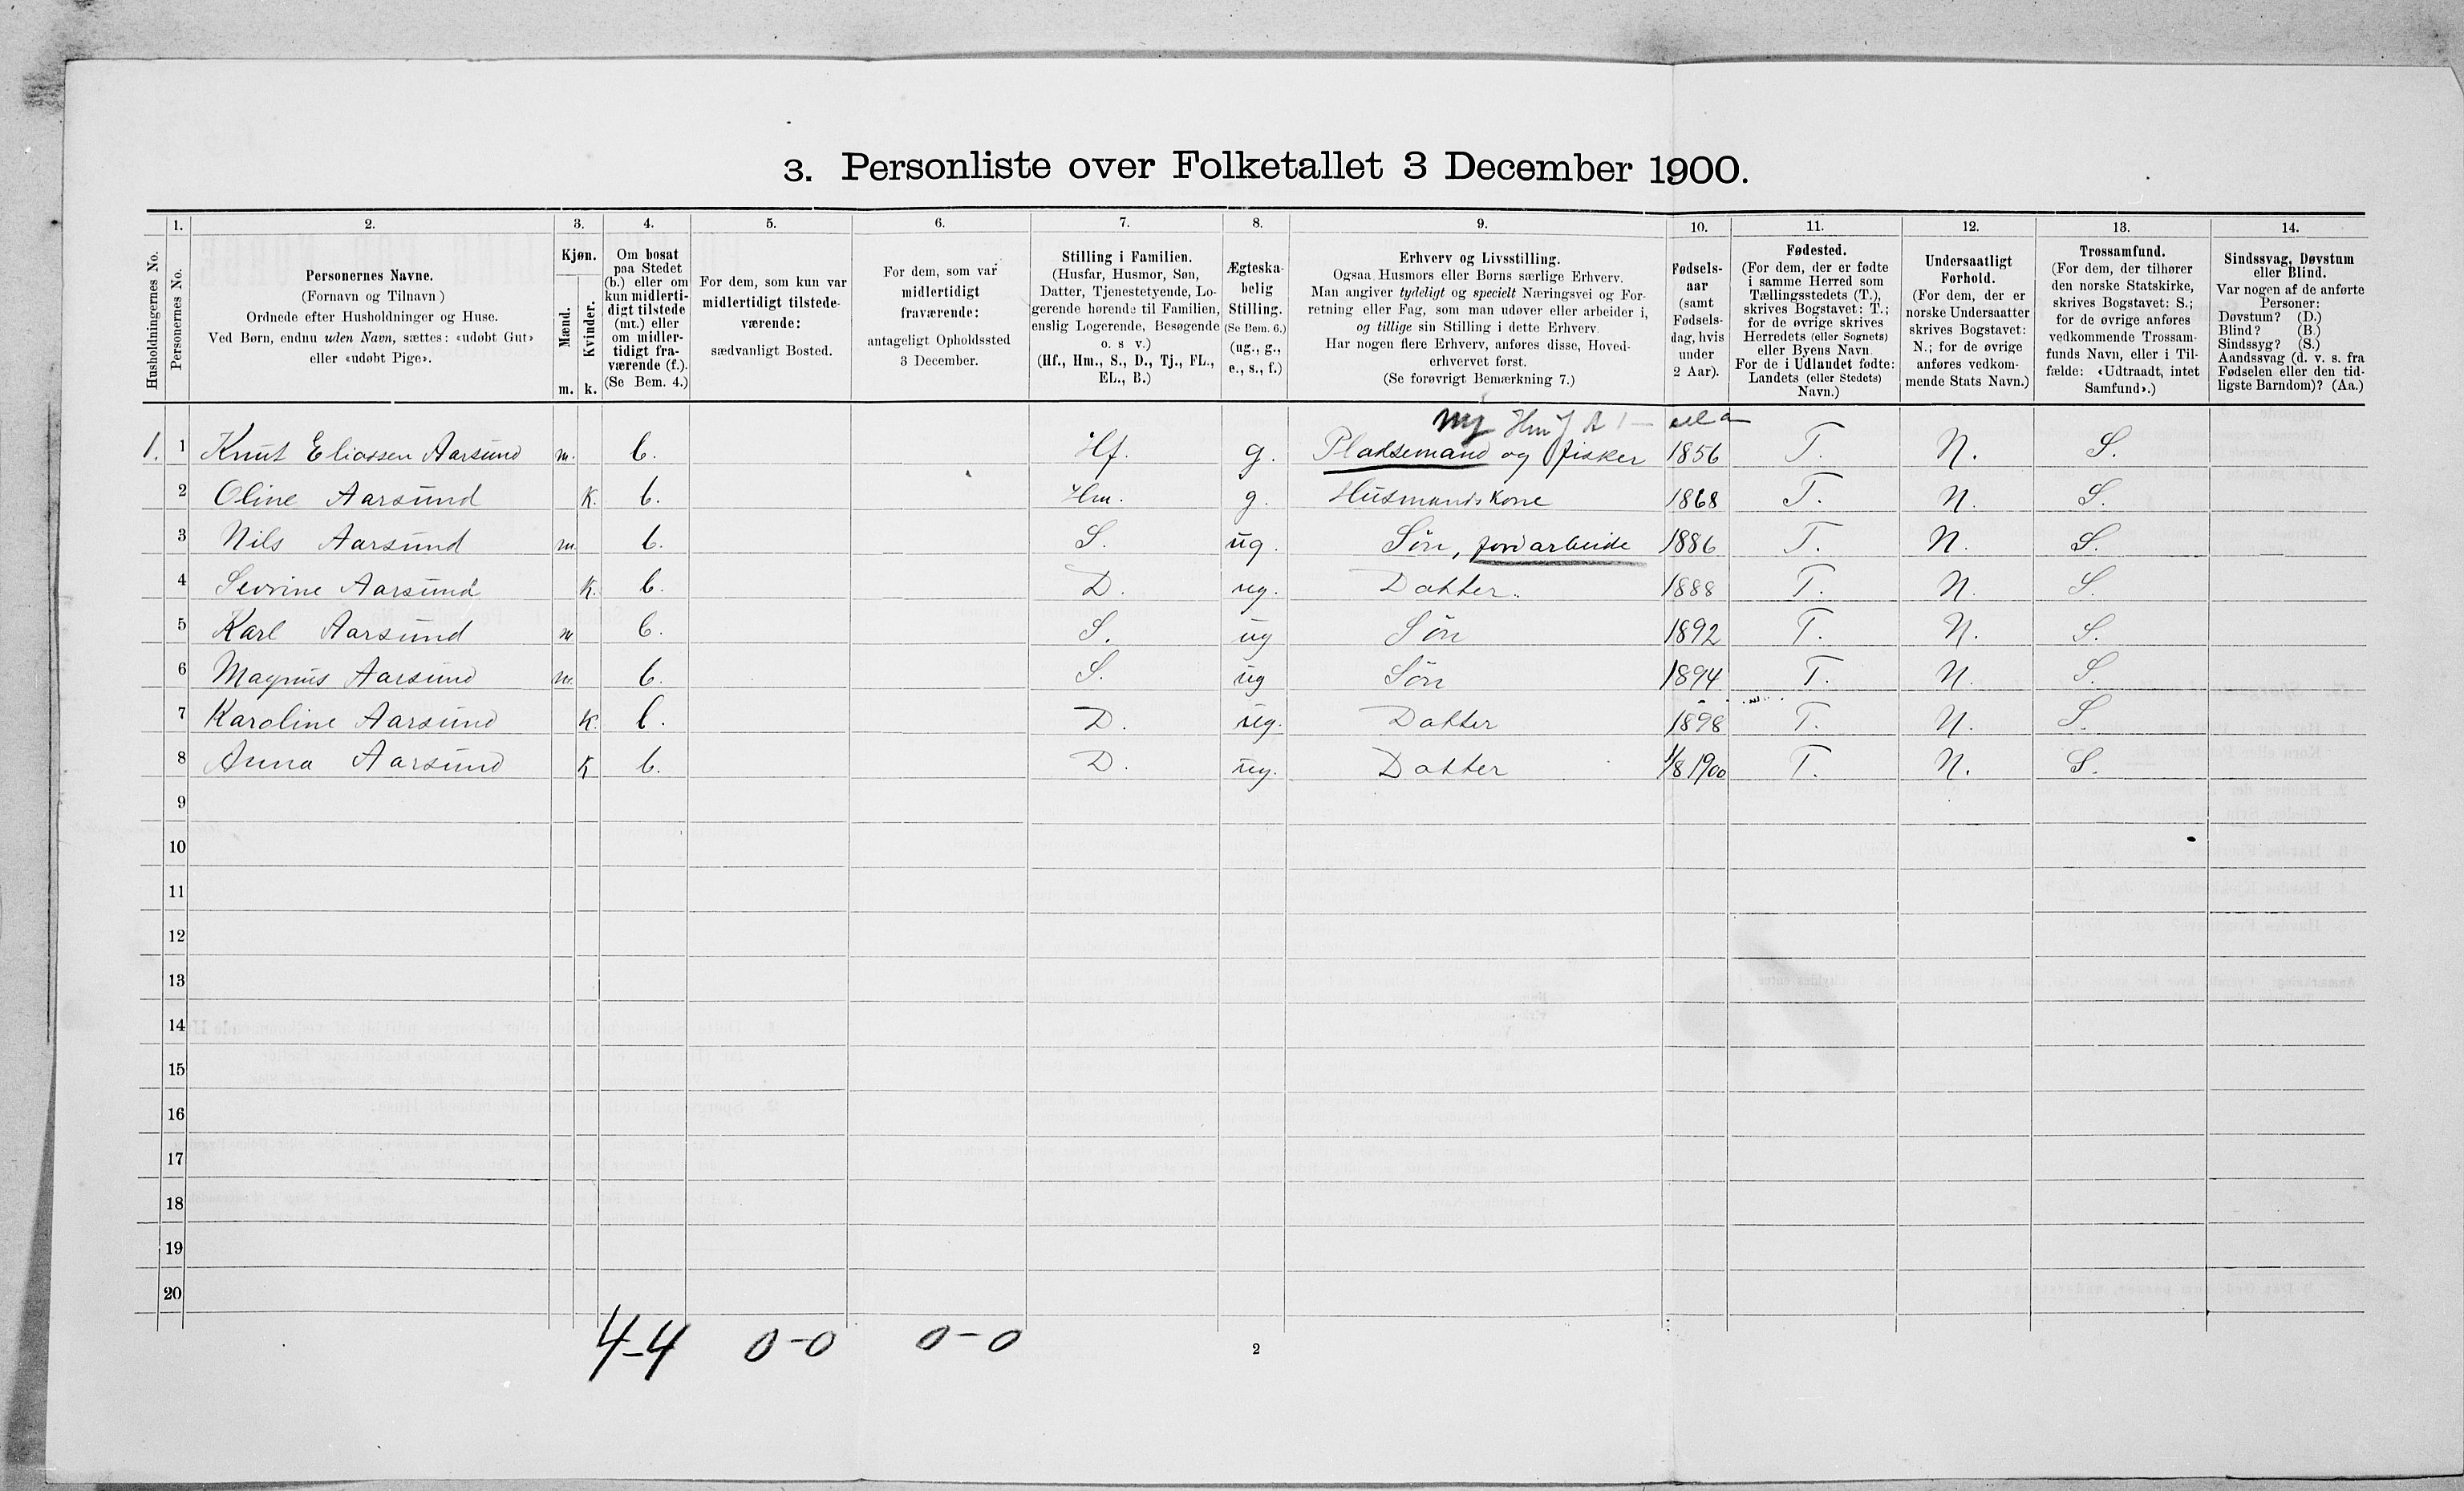 3. Personliste over Folketallet 3 December 1900.
1. 2. 3. 4. 5. 6. 7. 8. 9. 10. 11. 12. 13. 14.
Husholdningernes No.
Personernes No.
Personernes Navne.
(Fornavn og Tilnavn)
Ordnede efter Husholdninger og Huse.
Ved Børn, endnu uden Navn, sættes: «udøbt Gut»
eller «udøbt Pige».
Kjøn.
Mænd.
Kvinder.
m. k.
Om bosat
paa Stedet
(b.) eller om
kun midlerti-
digt tilstede
(mt.) eller
om midler-
tidigt fra-
værende (f.).
(Se Bem. 4.)
For dem, som kun var
midlertidigt tilstede-
værende:
sædvanligt Bosted.
For dem, som var
midlertidigt
fraværende:
antageligt Opholdssted
3 December.
Stilling i Familien.
(Husfar, Husmor, Søn,
Datter, Tjenestetyende, Lo-
gerende hørende til Familien,
enslig Logerende, Besøgende
o. s v.)
(Hf., Hm., S., D., Tj., FL.,
EL., B.)
Ægteska-
belig
Stilling.
(Se Bem. 6.)
(ug., g.,
e., s., f.)
Erhverv og Livsstilling.
Ogsaa Husmors eller Børns særlige Erhverv.
Man angiver tydeligt og specielt Næringsvei og For-
retning eller Fag, som man udøver eller arbeider i,
og tillige sin Stilling i dette Erhverv.
Har nogen flere Erhverv, anføres disse, Hoved-
erhvervet først.
(Se forøvrigt Bemærkning 7.)
Fødsels-
aar
(samt
Fødsels-
dag, hvis
under
2 Aar).
Fødested.
(For dem, der er fødte
i samme Herred som
Tællingsstedets (T.),
skrives Bogstavet: T.;
for de øvrige skrives
Herredets (eller Sognets)
eller Byens Navn.
For de i Udlandet fødte:
Landets (eller Stedets)
Navn.)
Undersaatligt
Forhold.
(For dem, der er
norske Undersaatter
skrives Bogstavet:
N.; for de øvrige
anføres vedkom-
mende Stats Navn.)
Trossamfund.
(For dem, der tilhører
den norske Statskirke,
skrives Bogstavet: S.;
for de øvrige anføres
vedkommende Trossam-
funds Navn, eller i Til-
fælde: «Udtraadt, intet
Samfund».)
Sindssvag, Døvstum
eller Blind.
Var nogen af de anførte
Personer:
Døvstum? (D.)
Blind? (B.)
Sindssyg? (S.)
Aandssvag (d. v. s. fra
Fødselen eller den tid-
ligste Barndom)? (Aa.)
1. 1 Knut Eliassen Aarsund m. b. Hf. g. Pladsemand og fisker 1856 T. N. S.
2 Oline Aarsund K. b. Hm. g. Husmandskone 1868 T. N. S.
3 Nils Aarsund m. b. S. ug. Søn, jordarbeide 1886 T. N. S.
4 Sevrine Aarsund K. b. D. ug. Datter. 1888 T. N. S.
5 Karl Aarsund m b. S. ug Søn 1892 T. N. S.
6 Magnus Aarsund m. b. S. ug Søn 1894 T. N. S.
7 Karoline Aarsund K. b. D. ug. Datter 1898 T. N. S.
8 Anna Aarsund K b. D. ug. Datter 1/8 1900 T. N. S.
9
10
11
12
13
14
15
16
17
18
19
20
4-4 0-0 0-0
2